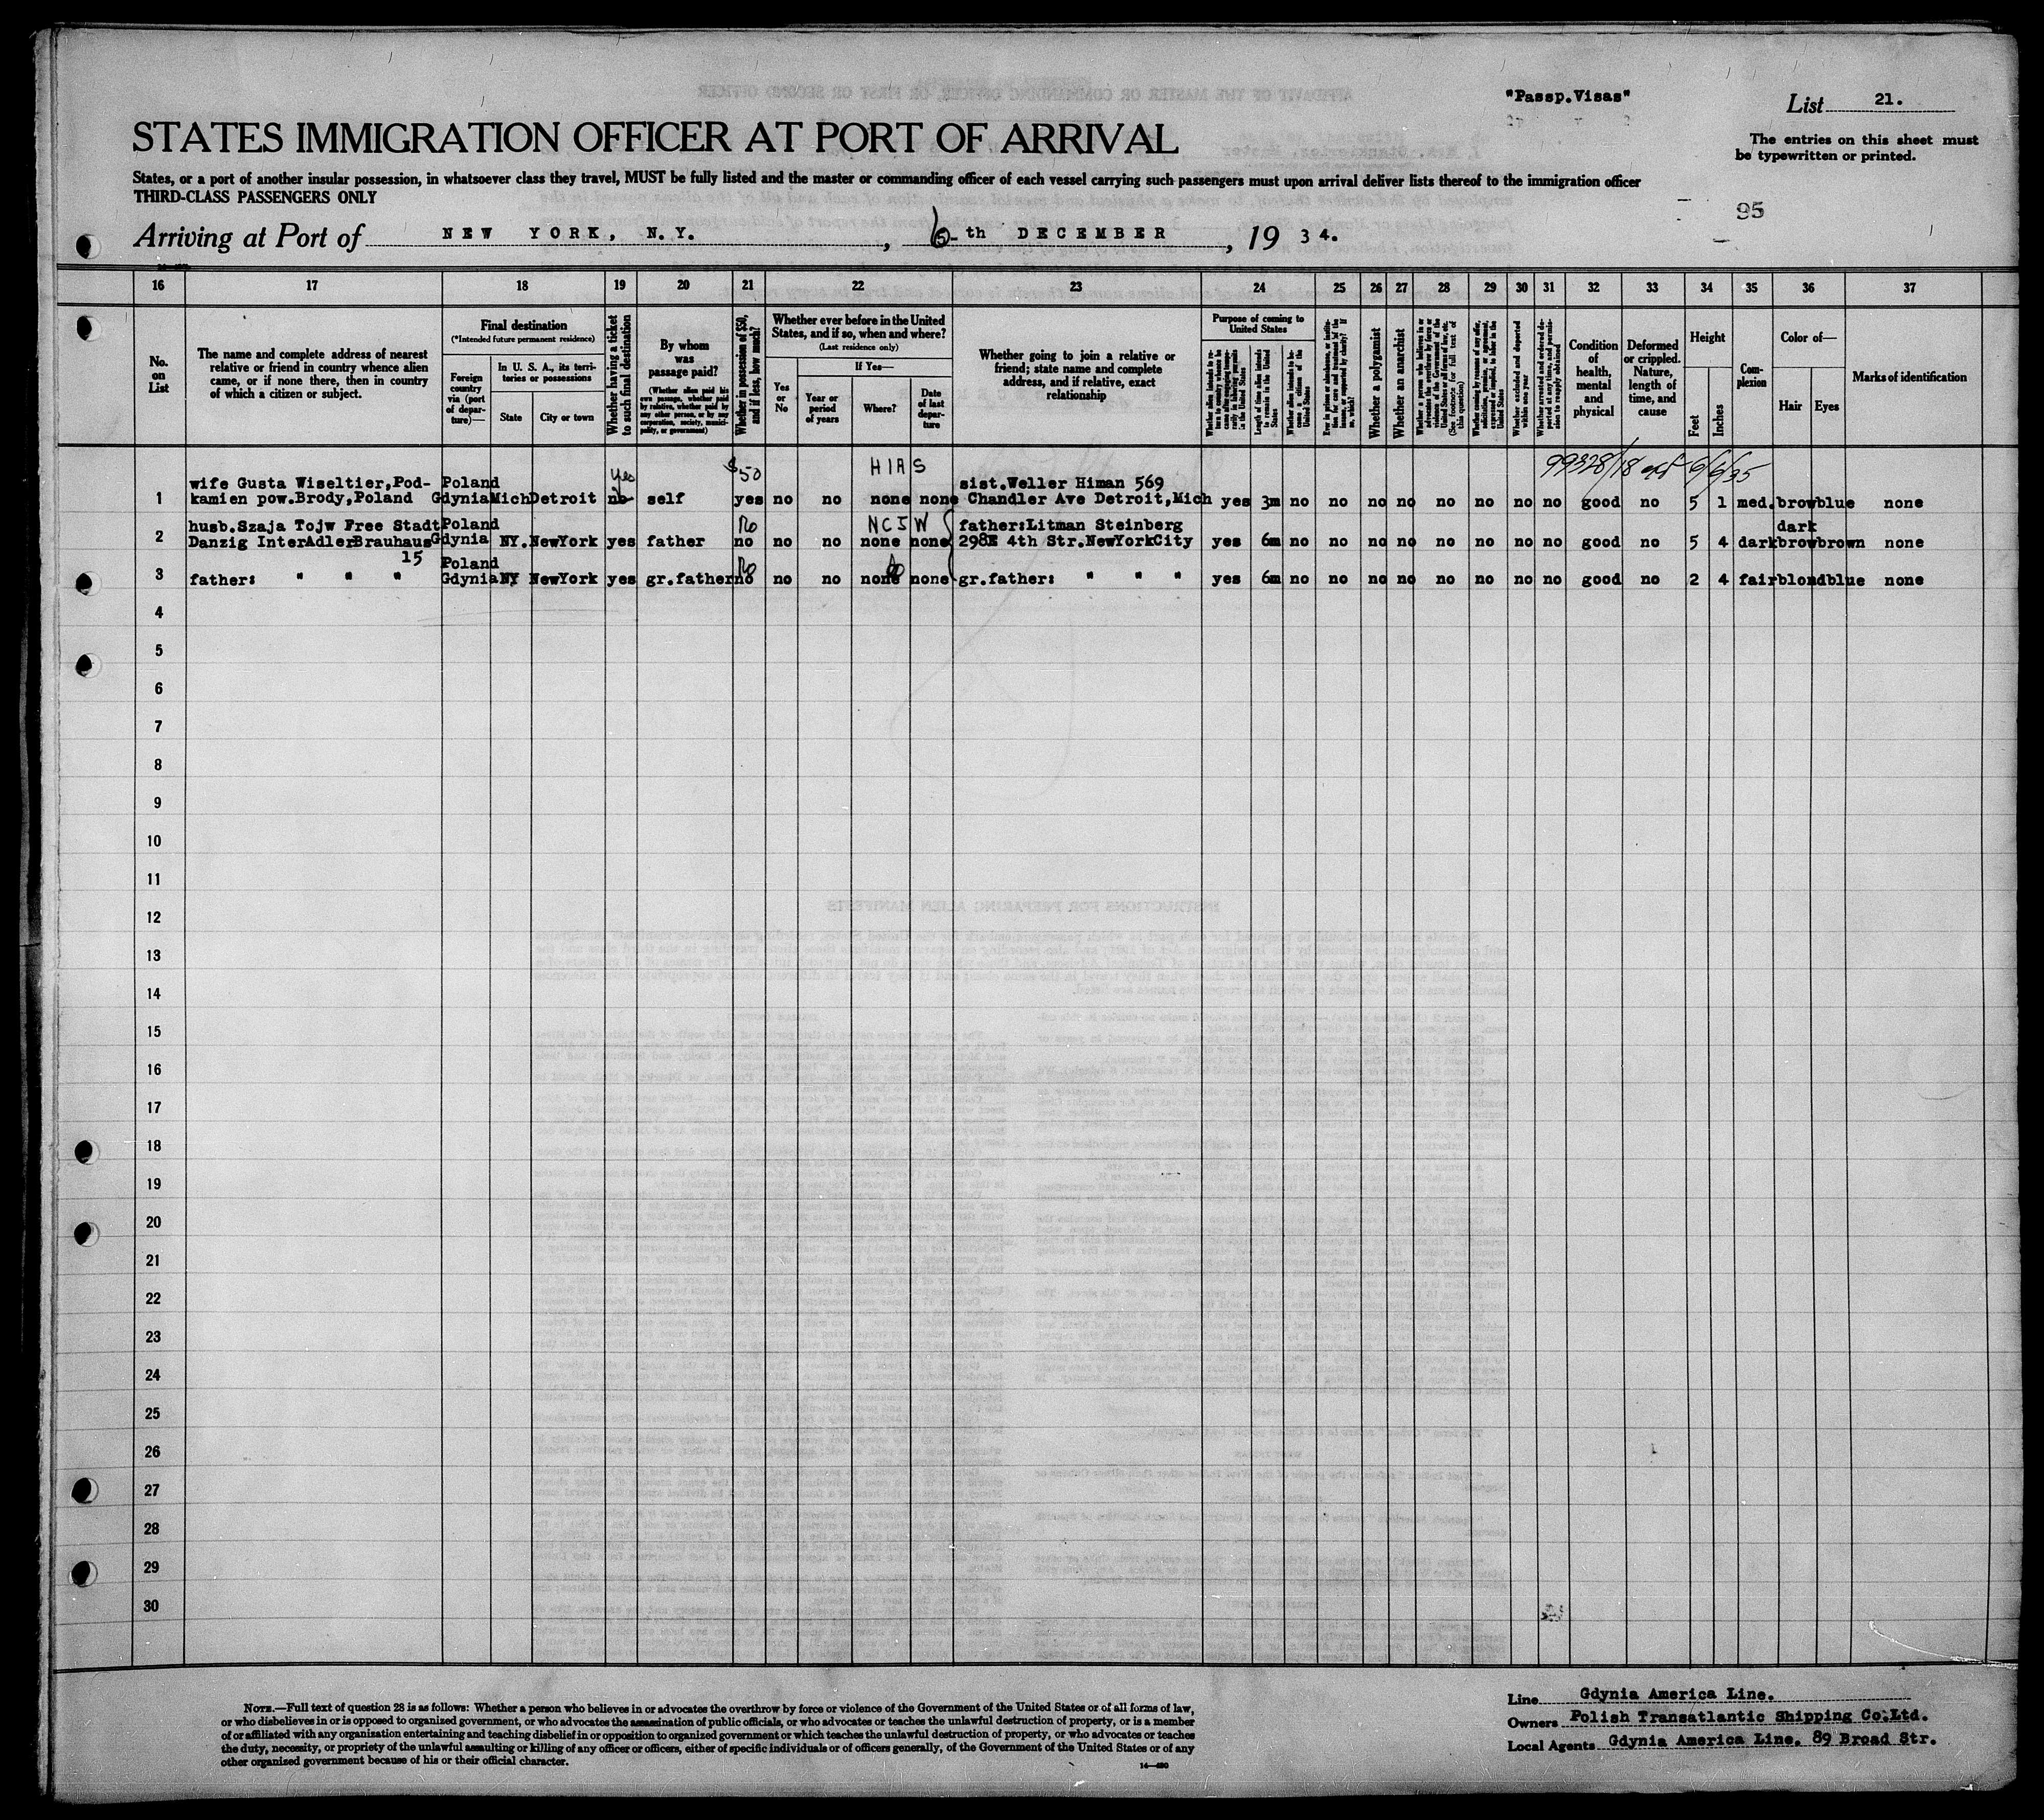 "Passp.Visas"
List 21.
STATES IMMIGRATION OFFICER AT PORT OF ARRIVAL
The entries on this sheet must
be typewritten or printed.
States, or a port of another insular possession, in whatsoever class they travel, MUST be fully listed and the master or commanding officer of each vessel carrying such passengers must upon arrival deliver lists thereof to the immigration officer
THIRD-CLASS PASSENGERS ONLY
95
Arriving at Port of NEW YORK, N.Y. , 6-th DECEMBER , 19 34.
16 17 18 19 20 21 22 23 24 25 26 27 28 29 30 31 32 33 34 35 36 37
No. on List
The name and complete address of nearest
relative or friend in country whence alien
came, or if none there, then in country
of which a citizen or subject.
Final destination
(*Intended future permanent residence)
Foreign country via (port of departure)—
In U. S. A., its territories or possessions
State
City or town
Whether having a ticket to such final destination
By whom was passage paid?
(Whether alien paid his own passage, whether paid by relative, whether paid by any other person, or by any corporation, society, municipality, or government)
Whether in possession of $50, and if less, how much?
Whether ever before in the United
States, and if so, when and where?
(Last residence only)
Yes or No
If Yes—
Year or period of years
Where?
Date of last departure
Whether going to join a relative or
friend; state name and complete
address, and if relative, exact
relationship
Purpose of coming to United States
Length of time alien intends to remain in the United States
Whether alien intends to become a citizen of the United States
Whether a polygamist
Whether an anarchist
Condition of health, mental and physical
Deformed or crippled. Nature, length of time, and cause
Height
Feet
Inches
Complexion
Color of—
Hair
Eyes
Marks of identification
yes $50 HIAS 99328/18 6/6/35
wife Gusta Wiseltier,Pod- Poland sist.Weller Himan 569
1 kamien pow.Brody,Poland Gdynia Mich Detroit no self yes no no none none Chandler Ave Detroit,Mich yes 3m no no no no no no no no good no 5 1 med. brow blue none
husb.Szaja Tojw Free Stadt Poland No NCJW father:Litman Steinberg dark
2 Danzig InterAdlerBrauhaus Gdynia NY. NewYork yes father no no no none none 298E 4th Str.NewYorkCity yes 6m no no no no no no no no good no 5 4 dark brow brown none
15 Poland No
3 father: " " " Gdynia NY NewYork yes gr.father no no no none none gr.father: " " " yes 6m no no no no no no no no good no 2 4 fair blond blue none
4
5
6
7
8
9
10
11
12
13
14
15
16
17
18
19
20
21
22
23
24
25
26
27
28
29
30
NOTE.—Full text of question 28 is as follows: Whether a person who believes in or advocates the overthrow by force or violence of the Government of the United States or of all forms of law,
or who disbelieves in or is opposed to organized government, or who advocates the assassination of public officials, or who advocates or teaches the unlawful destruction of property, or is a member
of or affiliated with any organization entertaining and teaching disbelief in or opposition to organized government or which teaches the unlawful destruction of property, or who advocates or teaches
the duty, necessity, or propriety of the unlawful assaulting or killing of any officer or officers, either of specific individuals or of officers generally, of the Government of the United States or of any
other organised government because of his or their official character.
14—480
Line Gdynia America Line.
Owners Polish Transatlantic Shipping Co.Ltd.
Local Agents Gdynia America Line. 89 Broad Str.